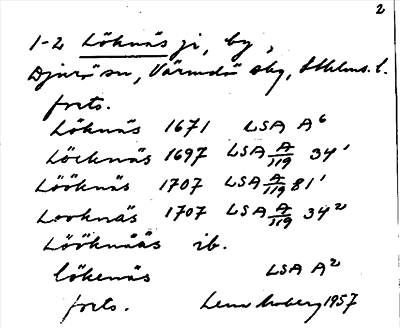 2
1-2 Löknäs gi, by,
Djurö sn, Värmdö skg, Sthlms l.
forts.
Löknäs 1671 LSA A⁶
Löcknäs 1697 LSA A/119 34¹
Löök​näs 1707 LSA A/119 81¹
Looknäs 1707 LSA A/119 34²
Lööknääs ib.
Lökenäs LSA A²
forts. Lena Moberg 1957